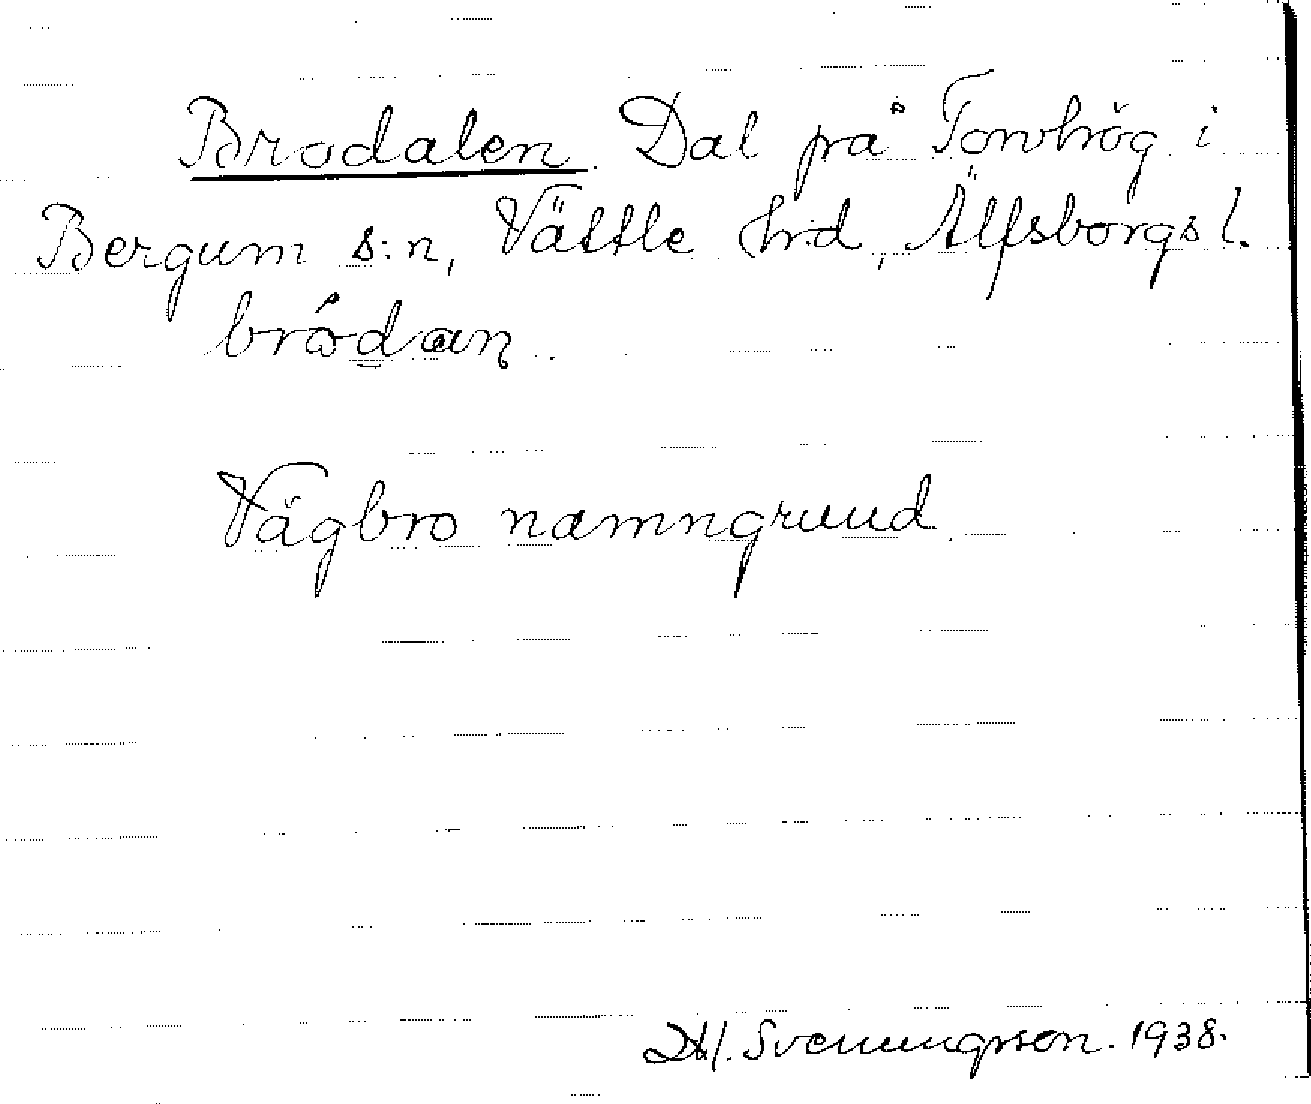 Brodalen. Dal på Torvhög i
Bergum s:n, Vättle hrd, Älfsborgs l.
bródan.
Vägbro namngrund.
Hj. Svenungsson. 1938.